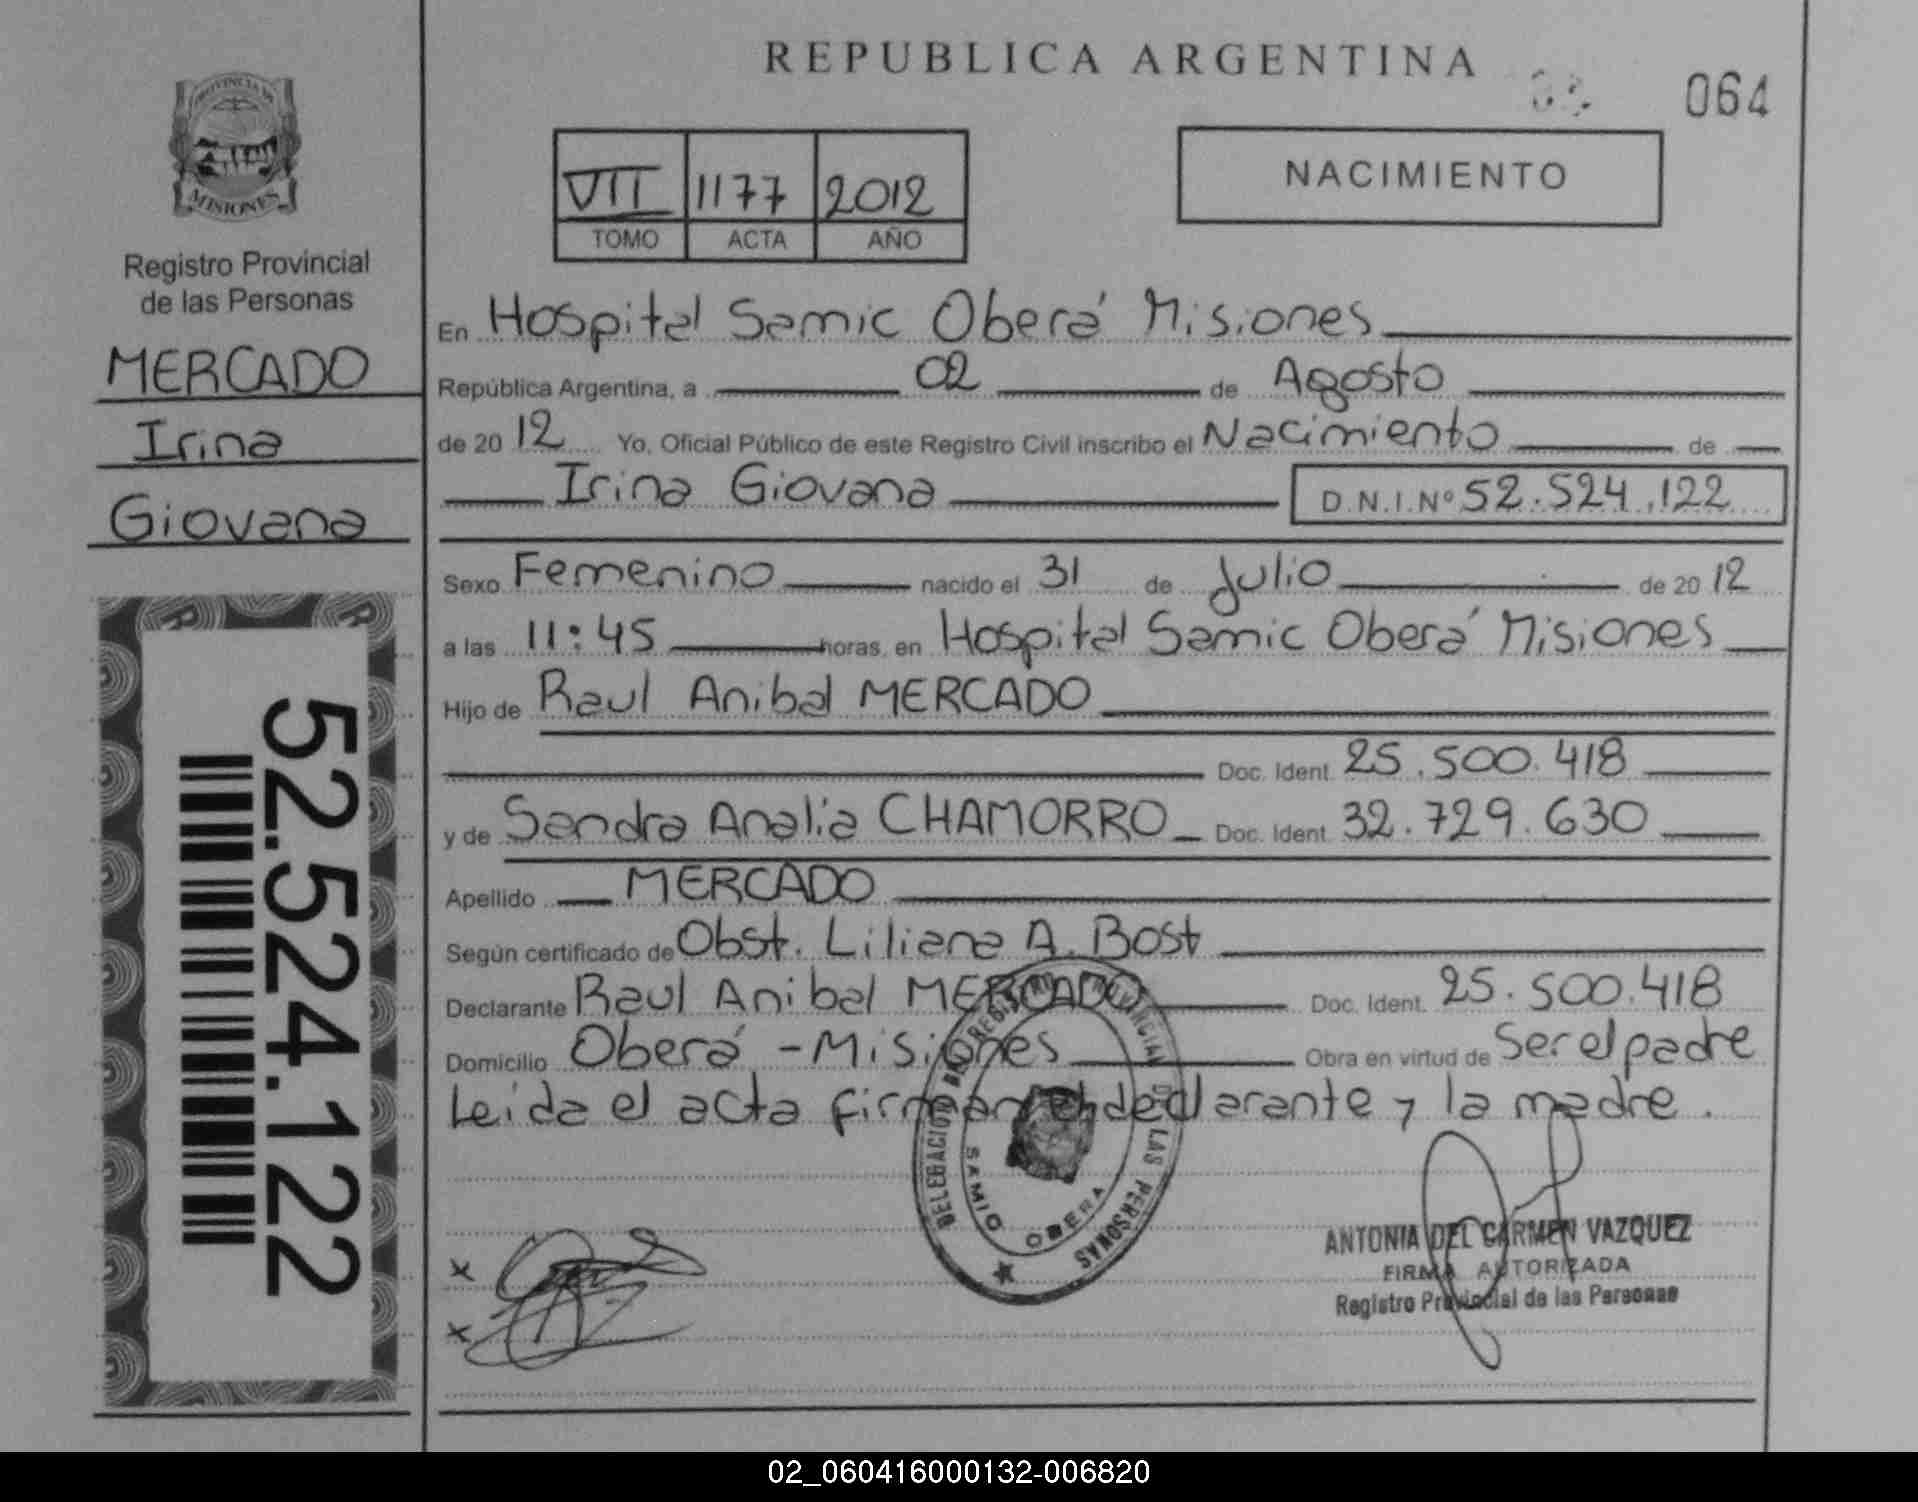 REPUBLICA ARGENTINA
064
PROVINCIA DE
MISIONES
VII 1177 2012
TOMO ACTA AÑO
NACIMIENTO
Registro Provincial
de las Personas
MERCADO
Irina
Giovana
52.524.122
En Hospital Samic Oberá Misiones
República Argentina, a 02 de Agosto
de 20 12 Yo, Oficial Público de este Registro Civil inscribo el Nacimiento de
Irina Giovana D.N.I.Nº 52.524.122
Sexo Femenino nacido el 31 de Julio de 20 12
a las 11:45 horas, en Hospital Samic Oberá Misiones
Hijo de Raul Anibal MERCADO
Doc. Ident. 25.500.418
y de Sandra Analia CHAMORRO Doc. Ident. 32.729.630
Apellido MERCADO
Según certificado de Obst. Liliana A. Bost
Declarante Raul Anibal MERCADO Doc. Ident. 25.500.418
Domicilio Oberá - Misiones Obra en virtud de Ser el padre
Leida el acta firman el declarante y la madre.
DELEGACION DEL REGISTRO PROVINCIAL DE LAS PERSONAS
SAMIC OBERA
x
x
ANTONIA DEL CARMEN VAZQUEZ
FIRMA AUTORIZADA
Registro Provincial de las Personas
02_060416000132-006820